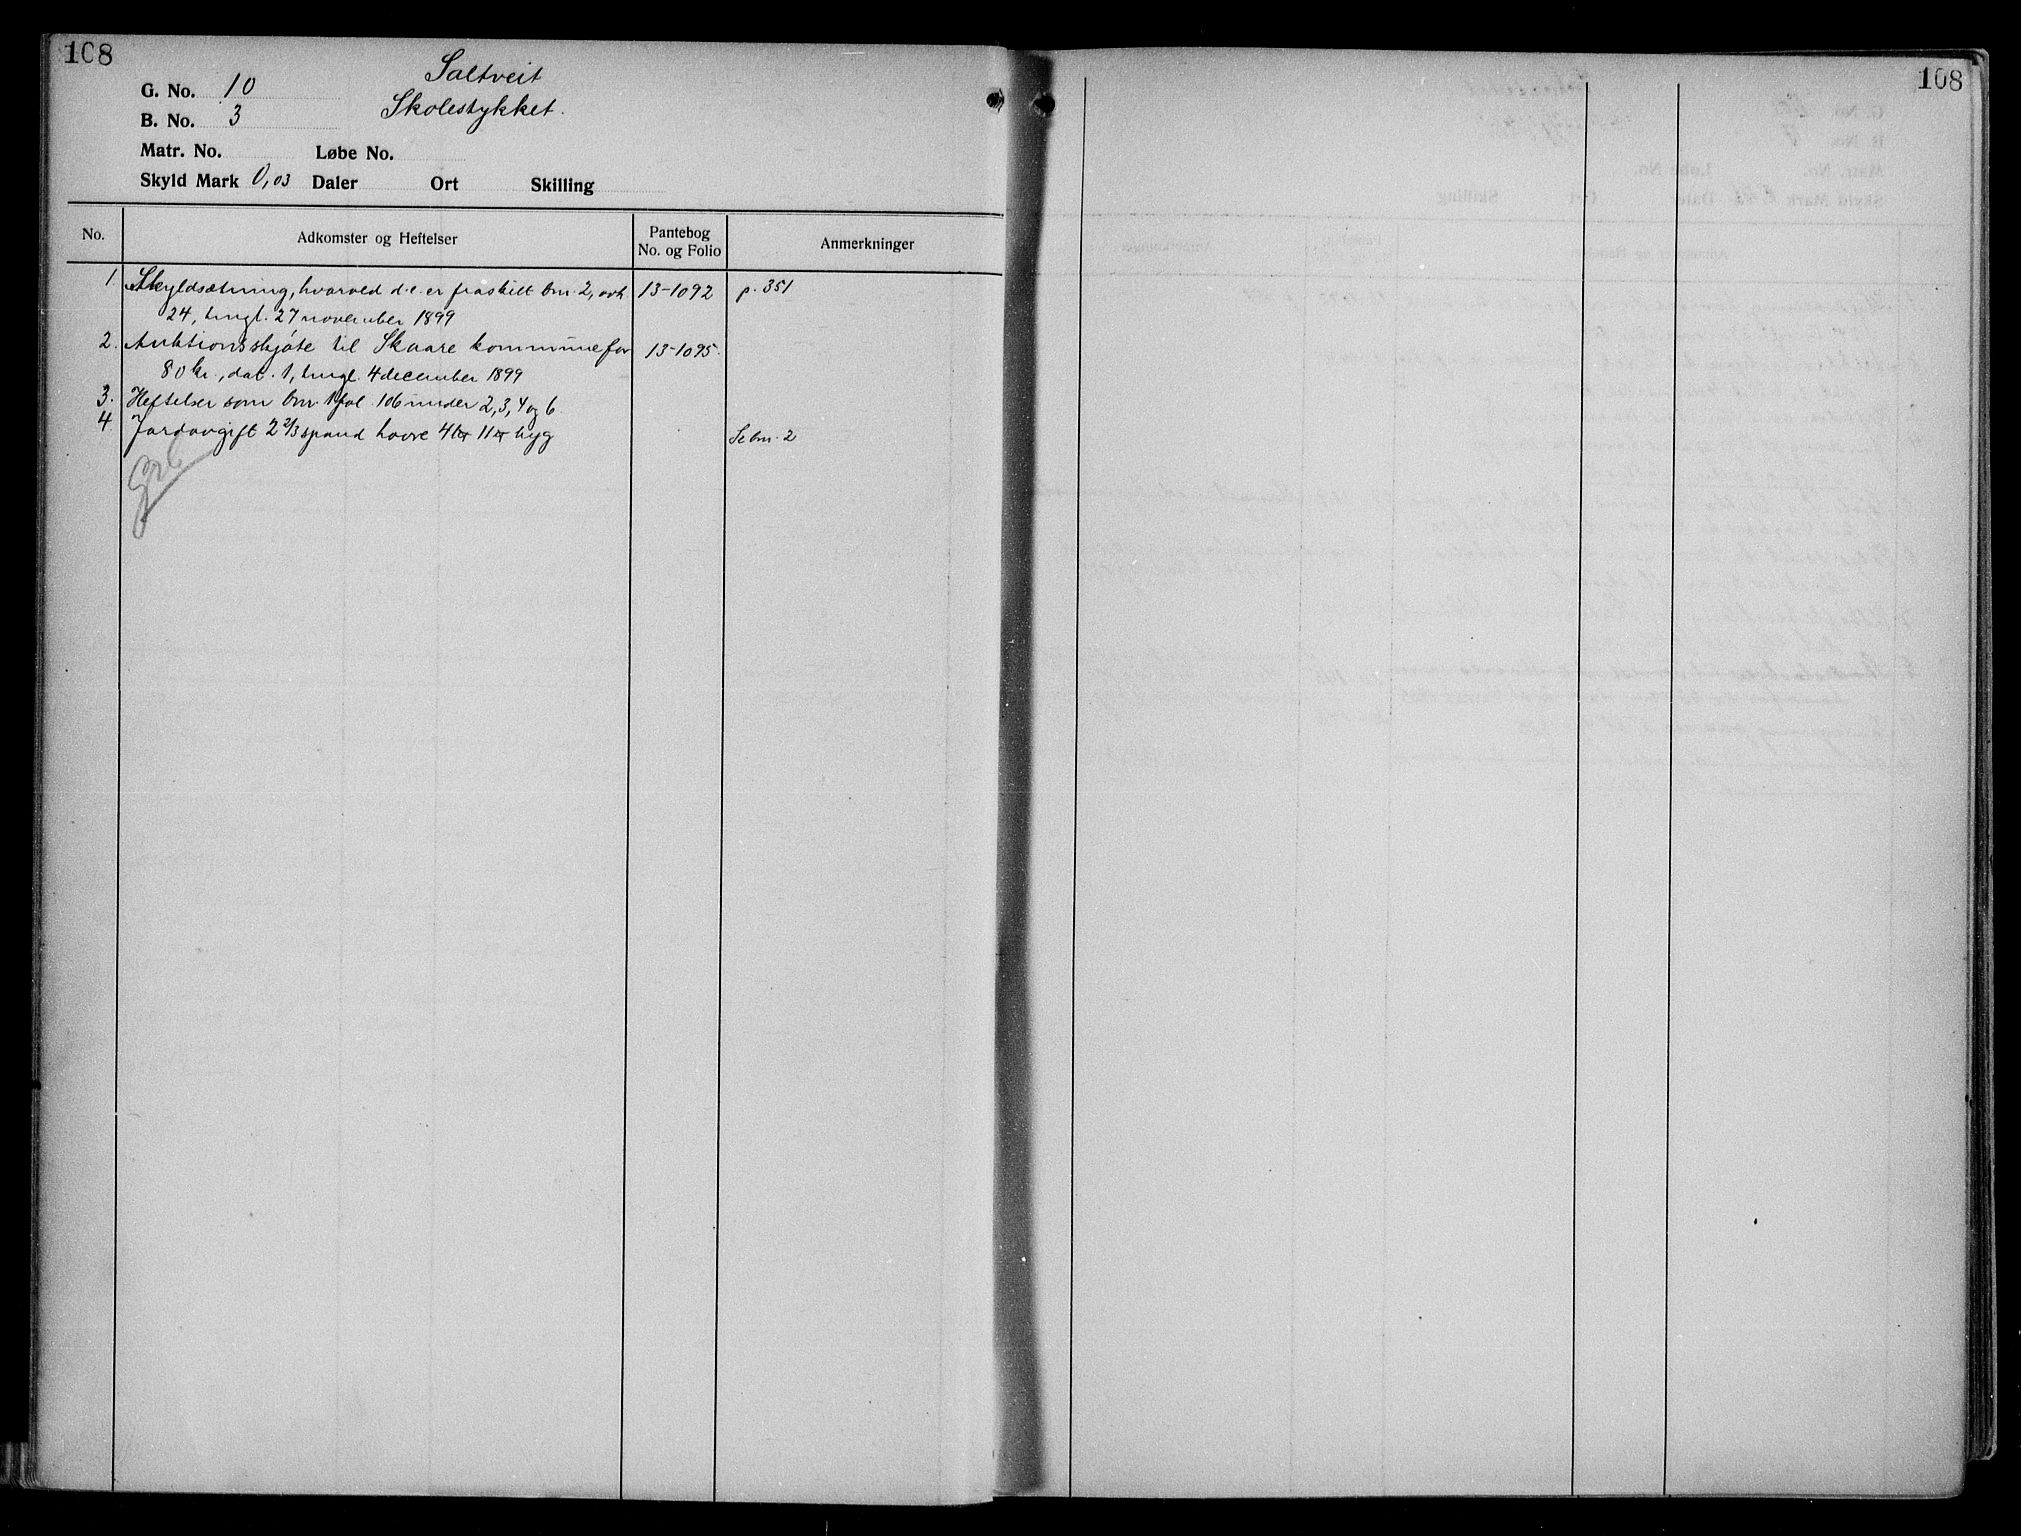 108
Saltveit
Skolestykket.
G. No. 10
B. No. 3
Matr. No. Løbe No.
Skyld Mark 0,03 Daler Ort Skilling
No. Adkomster og Heftelser Pantebog No. og Folio Anmerkninger
1. Skyldsætning, hvorved d.e. er fraskilt bnr. 2, avh. 13-1092 p. 351
24, tingl. 27 november 1899
2. Auktionsskjøte til Skaare kommune for 13-1095.
80 kr., dat. 1, tingl. 4 december 1899
3. Heftelser som bnr. 1 fol. 106 under 2, 3, 4 og 6
4 Jordavgift 2 2/3 spand havre 4 11 byg Se bnr. 2
108